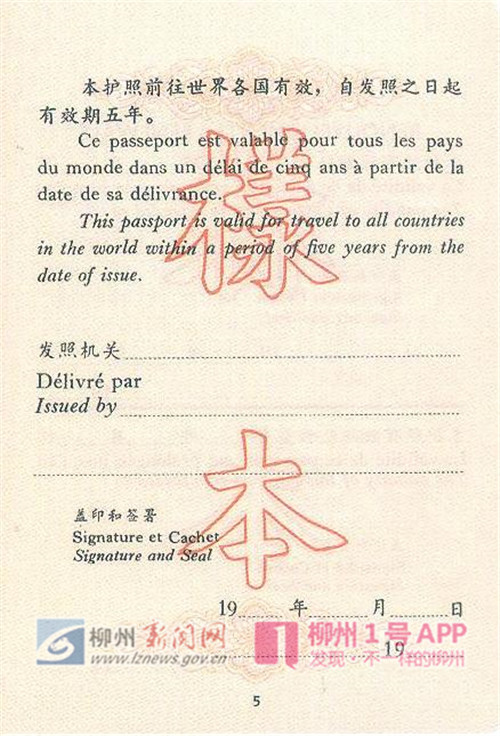 本护照前往世界各国有效，自发照之日起
有效期五年。
Ce passeport est valable pour tous les pays
du monde dans un délai de cinq ans à partir de la
date de sa délivrance.
This passport is valid for travel to all countries
in the world within a period of five years from the
date of issue.
樣
发照机关
Délivré par
Issued by
本
盖印和签署
Signature et Cachet
Signature and Seal
19 年 月 日
19
柳州新闻网
www.lznews.gov.cn
柳州1号APP
发现·不一样的柳州
5